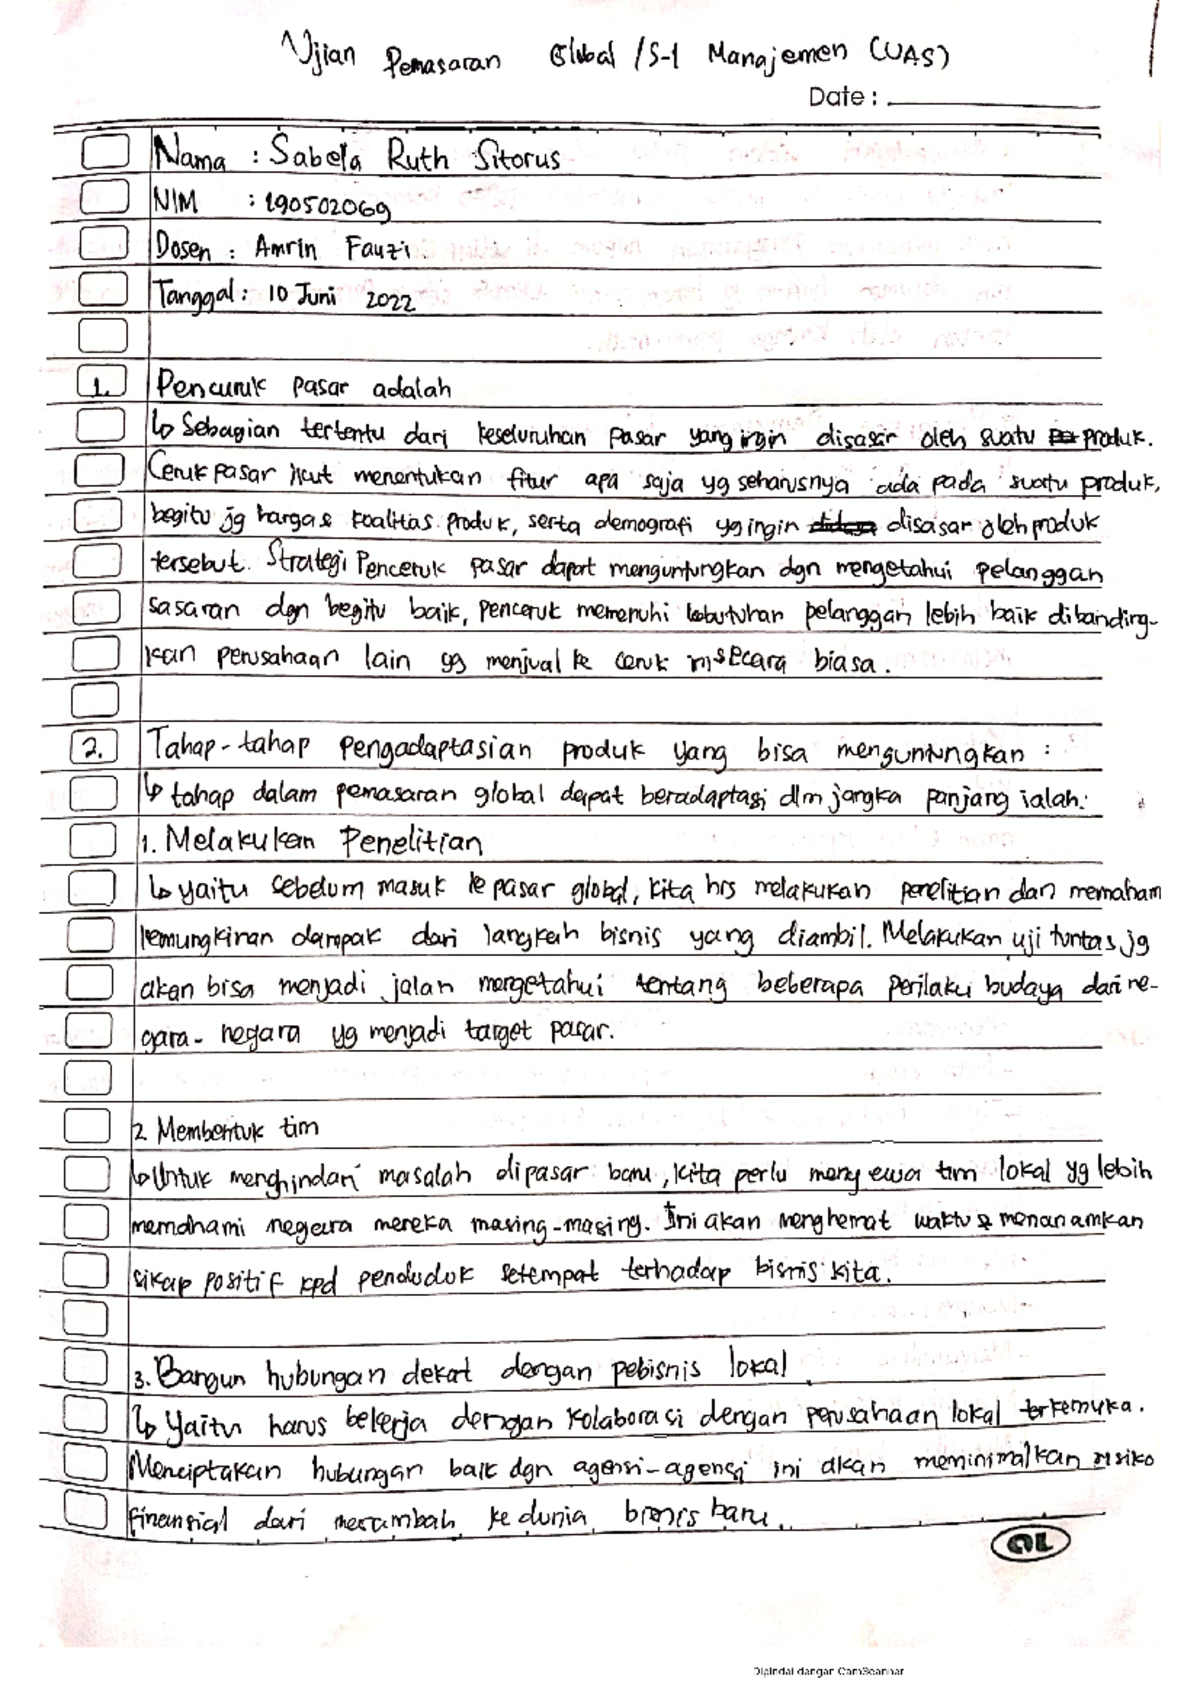 Ujian Pemasaran Global / S-1 Manajemen (UAS)
Date :
Nama : Sabela Ruth Sitorus
NIM : 190502069
Dosen : Amrin Fauzi
Tanggal : 10 Juni 2022
1. Penceruk pasar adalah
↳ Sebagian tertentu dari keseluruhan pasar yang ingin disasar oleh suatu produk.
Ceruk pasar ikut menentukan fitur apa saja yg seharusnya ada pada suatu produk,
begitu jg harga & kualitas produk, serta demografi yg ingin disasar oleh produk
tersebut. Strategi Penceruk pasar dapat menguntungkan dgn mengetahui pelanggan
sasaran dgn begitu baik, penceruk memenuhi kebutuhan pelanggan lebih baik dibanding-
kan perusahaan lain yg menjual ke ceruk secara biasa.
2. Tahap-tahap pengadaptasian produk yang bisa menguntungkan :
↳ tahap dalam pemasaran global dapat beradaptasi dlm jangka panjang ialah:
1. Melakukan Penelitian
↳ yaitu sebelum masuk ke pasar global, kita hrs melakukan penelitian dan memaham
kemungkinan dampak dari langkah bisnis yang diambil. Melakukan uji tuntas jg
akan bisa menjadi jalan mengetahui tentang beberapa perilaku budaya dari ne-
gara-negara yg menjadi target pasar.
2. Membentuk tim
↳ Untuk menghindari masalah dipasar baru, kita perlu menyewa tim lokal yg lebih
memahami negara mereka masing-masing. Ini akan menghemat waktu & menanamkan
sikap positif kpd penduduk setempat terhadap bisnis kita.
3. Bangun hubungan dekat dengan pebisnis lokal
↳ Yaitu harus bekerja dengan kolaborasi dengan perusahaan lokal terkemuka.
Menciptakan hubungan baik dgn agensi-agensi ini akan meminimalkan risiko
finansial dari merambah ke dunia bisnis baru.
OL
Dipindai dengan CamScanner